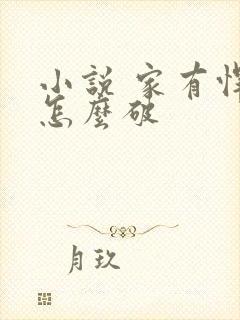 小說 家有
怎麼破
月玖